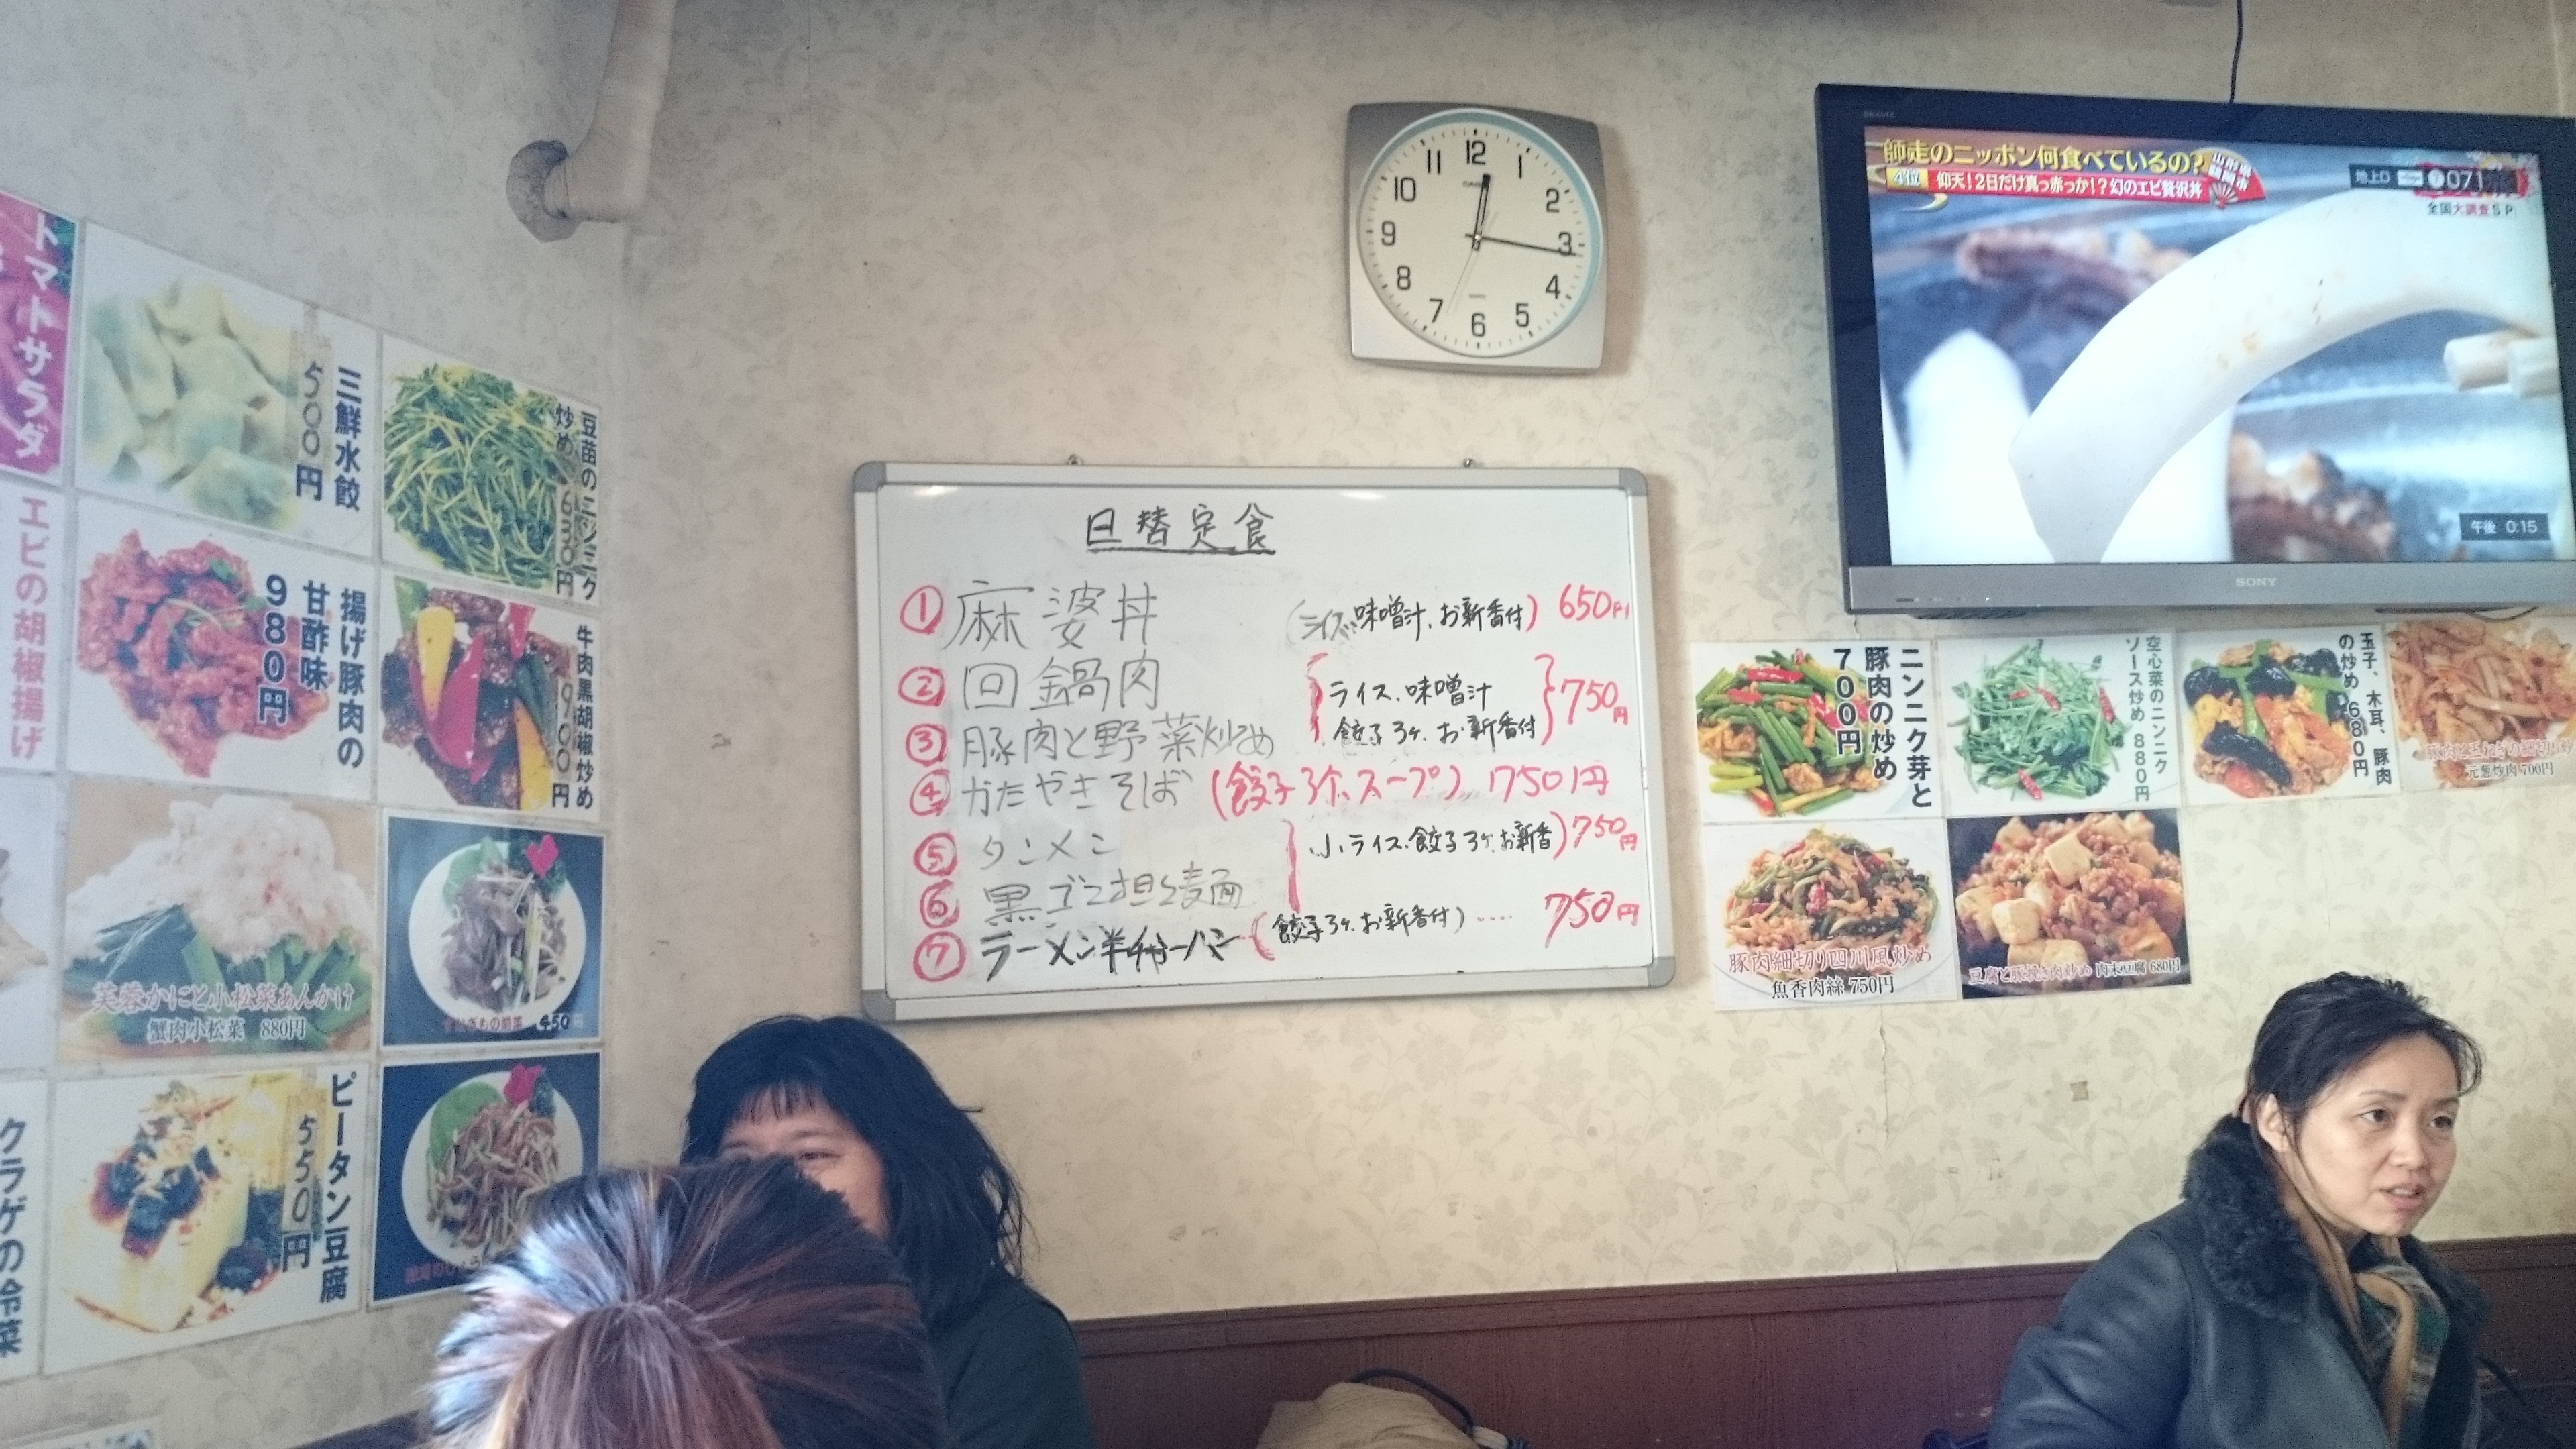 トマトサラダ
三鮮水餃
500円
豆苗のニンニク
炒め 630円
エビの胡椒揚げ
揚げ豚肉の
甘酢味
980円
牛肉黒胡椒炒め
円
芙蓉かにと小松菜あんかけ
蟹肉小松菜 880円
450円
ピータン豆腐
550円
クラゲの冷菜
12
1
2
3
4
5
6
7
8
9
10
11
日替定食
① 麻婆丼 (ライス、味噌汁、お新香付) 650円
② 回鍋肉
ライス、味噌汁
750円
③ 豚肉と野菜炒め
餃子3ヶ、お新香付
④ かたやきそば (餃子3ケ、スープ) 750円
⑤ タンメン
小ライス、餃子3ヶ、お新香) 750円
⑥ 黒ゴマ担々麺
⑦ ラーメン半チャーハン (餃子3ヶ、お新香付) ‥‥ 750円
BRAVIA
師走のニッポン何食べているの?
4位 仰天!2日だけ真っ赤っか!?幻のエビ贅沢丼
地上D
071
全国大調査SP
午後 0:15
SONY
ニンニク芽と
豚肉の炒め
700円
空心菜のニンニク
ソース炒め 880円
玉子、木耳、豚肉
の炒め 680円
元葱炒肉 700円
豚肉細切り四川風炒め
魚香肉絲 750円
豆腐と豚挽き肉炒め 肉末豆腐 680円